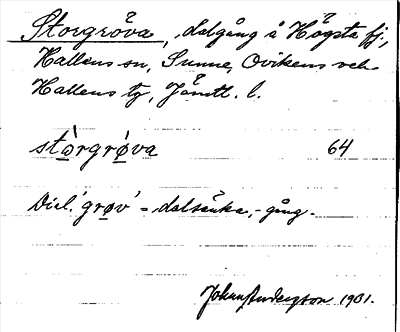 Storgröva, dalgång å Högsta fj,
Hallens sn, Sunne, Ovikens och
Hallens tg, Jämtl. l.
stòrgrǿva 64
Dial. 'grøv' = dalsänka, -gång.
Johan Anderzson 1931.